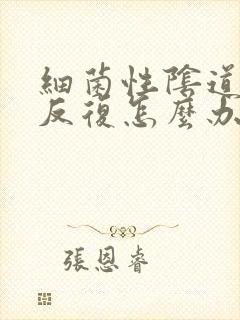 細菌性陰道
反復怎麼办
張恩睿